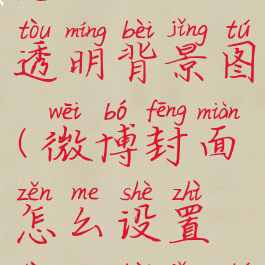 tòu míng bèi jǐng tú
透明背景图
wēi bó fēng miàn
(微博封面
zěn me shè zhì
怎么设置